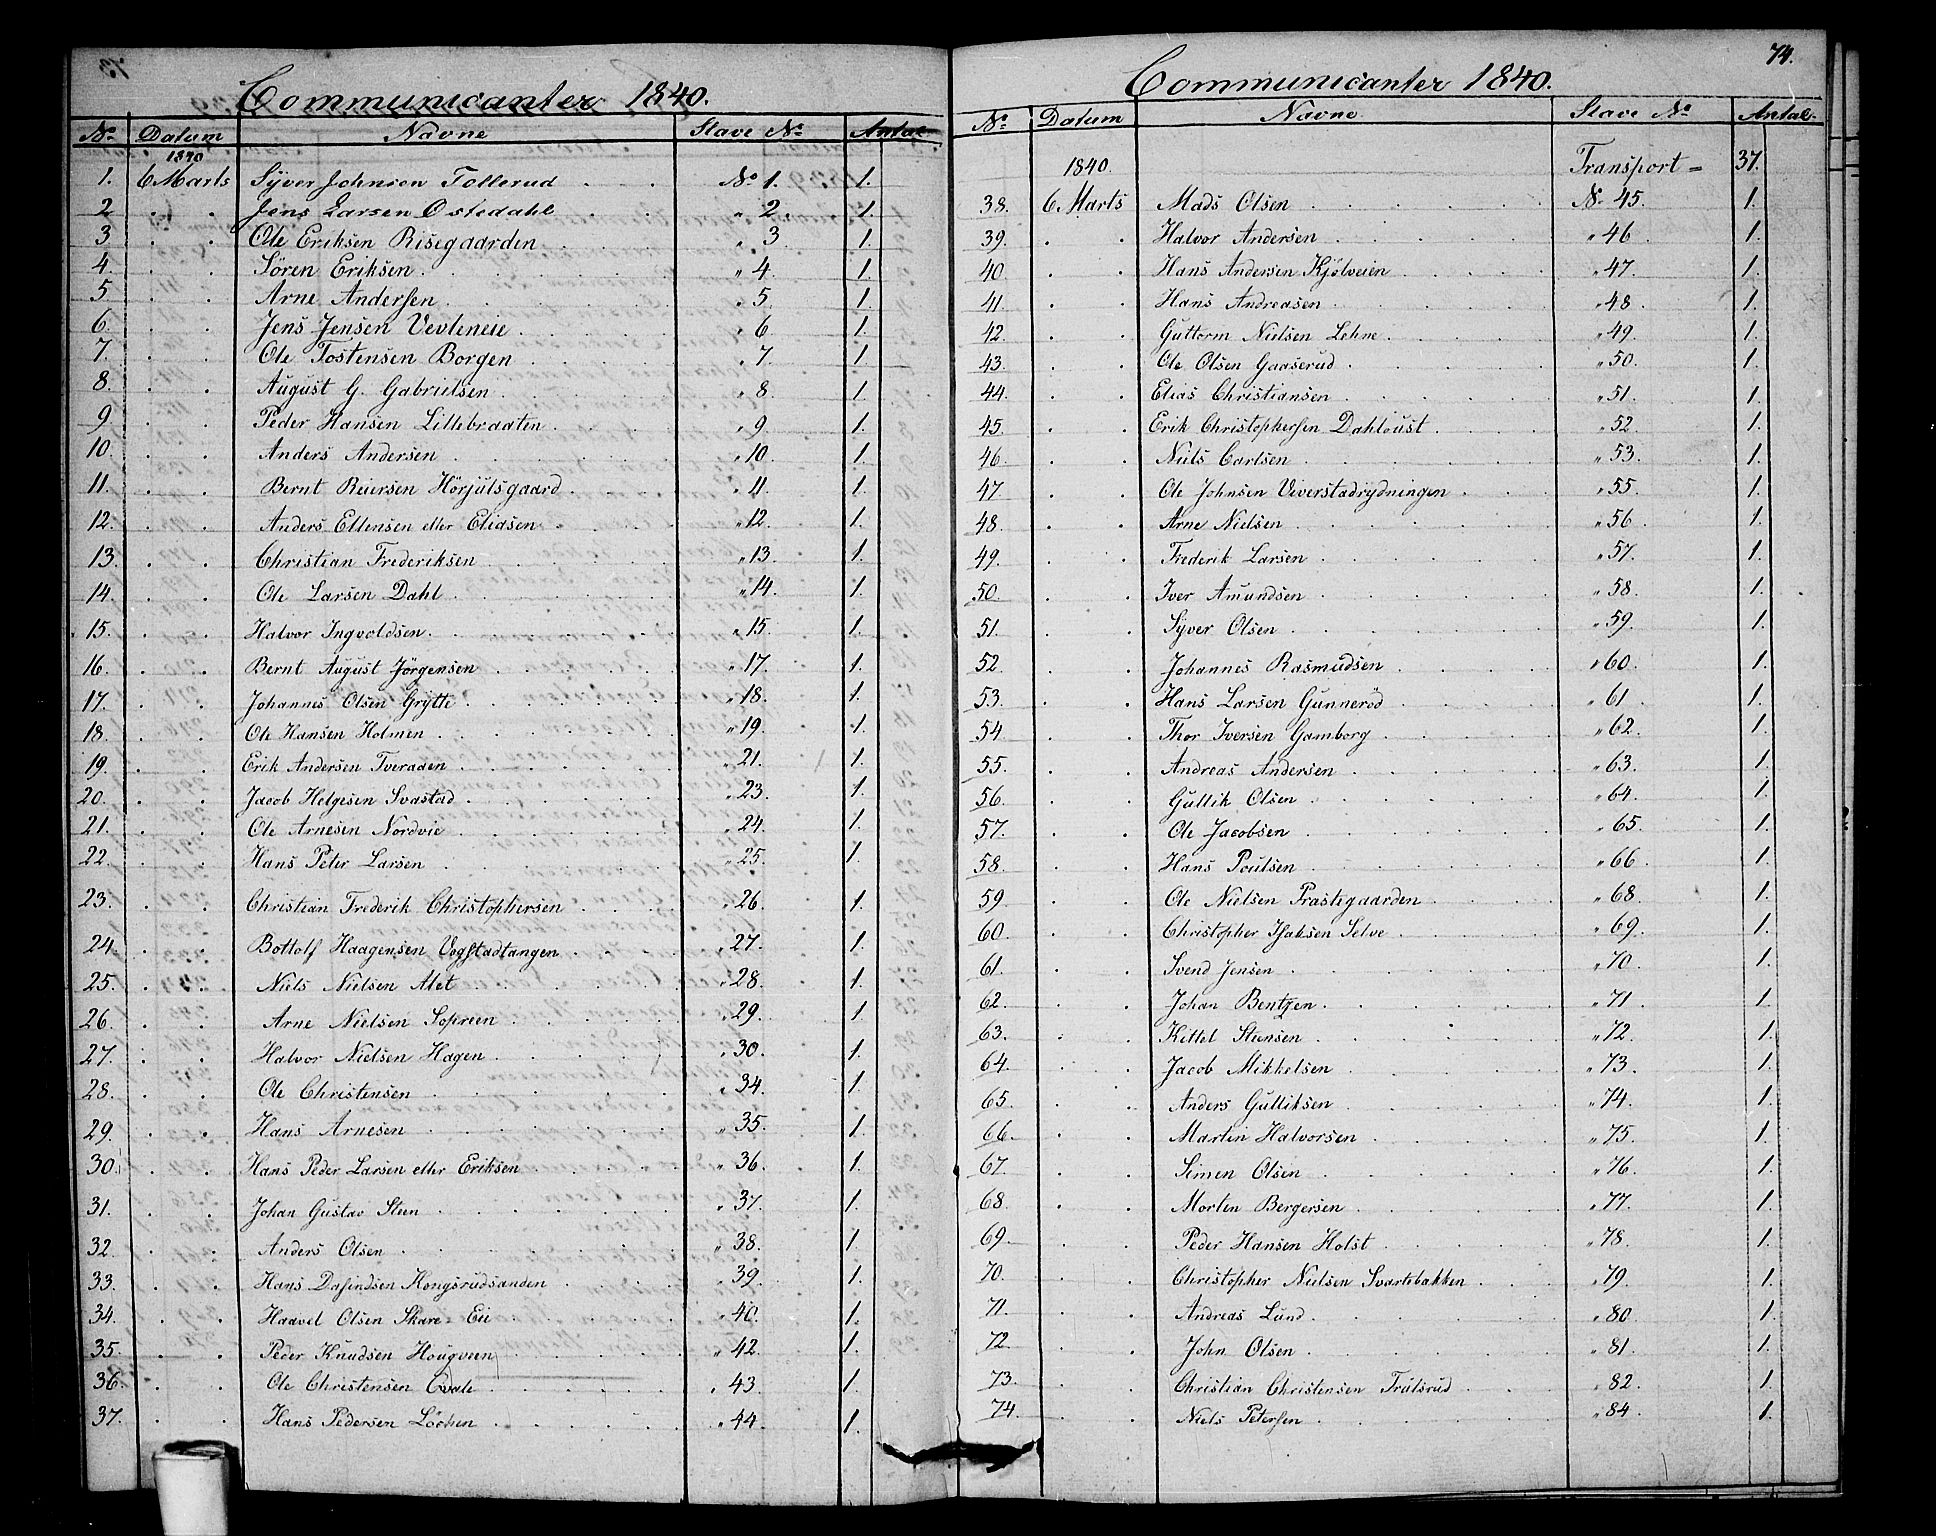 Communicanter 1840.
No. Datum Navne Slave No Antal
1840
1. 6 Marts Syver Johnson Tollerud No 1. 1.
2 . . Jens Larsen Ostedahl " 2. 1.
3 . . Ole Eriksen Risegaarden " 3 1.
4. . . Sören Eriksen " 4. 1.
5 . . Arne Andersen " 5 1.
6. . . Jens Jensen Vevleneie " 6 1.
7. . . Ole Tostensen Borgen " 7. 1.
8. . . August G. Gabrielsen " 8 1.
9 . . Peder Hansen Lillebraaten " 9. 1.
10. . . Anders Andersen " 10. 1.
11. . . Bernt Reiersen Hörjulsgaard " 11 1.
12. . . Anders Ellensen eller Eliasen " 12 1.
13. . . Christian Frederiksen " 13. 1.
14. . . Ole Larsen Dahl " 14. 1.
15. . . Halvor Ingvoldsen " 15 1.
16. . . Bernt August Jörgensen " 17. 1.
17. . . Johannes Olsen Grytte " 18. 1.
18. . . Ole Hansen Holmen " 19. 1.
19. . . Erik Andersen Tveraaen " 21. 1.
20. . . Jacob Helgesen Svastad " 23. 1.
21. . . Ole Arnesen Nordvie " 24. 1.
22. . . Hans Peter Larsen " 25. 1.
23. . . Christian Frederik Christophersen " 26. 1.
24. . . Bottolf Haagensen Vogstadtangen " 27. 1.
25. . . Niels Nielsen Alet " 28. 1.
26. . . Arne Nielsen Sopreen " 29. 1.
27. . . Halvor Nielsen Hagen " 30. 1.
28. . . Ole Christensen " 34. 1.
29. . . Hans Arnesen " 35. 1.
30. . . Hans Peder Larsen eller Eriksen " 36. 1.
31. . . Johan Gustav Steen " 37. 1.
32. . . Anders Olsen " 38. 1.
33. . . Hans Dafindsen Kongsrudsanden " 39. 1.
34. . . Haavel Olsen Skare Eii " 40. 1.
35. . . Peder Knudsen Hougveen " 42. 1.
36. . . Ole Christensen Qvale " 43. 1.
37. . . Hans Pedersen Löchen " 44. 1.
74.
Communicanter 1840.
No. Datum Navne Slave No Antal.
1840. Transport = 37.
38. 6 Marts Mads Olsen No 45. 1.
39. . . Halvor Andersen " 46 1.
40. . . Hans Andersen Kjölveien " 47. 1.
41. . . Hans Andreasen " 48. 1.
42. . . Guttorm Nielsen Lehne " 49. 1.
43. . . Ole Olsen Gaaserud " 50. 1.
44. . . Elias Christiansen " 51. 1.
45. . . Erik Christophersen Dahloust " 52 1.
46. . . Niels Carlsen " 53. 1.
47. . . Ole Johnsen Viverstadrydningen " 55. 1.
48. . . Arne Nielsen " 56 1.
49. . . Frederik Larsen " 57. 1.
50. . . Iver Amundsen " 58. 1.
51. . . Syver Olsen " 59. 1.
52. . . Johannes Rasmudsen " 60. 1.
53. . . Hans Larsen Gunneröd " 61 1.
54 . . Thor Iversen Gamborg " 62. 1.
55. . . Andreas Andersen " 63. 1.
56. . . Gullik Olsen " 64. 1.
57. . . Ole Jacobsen " 65. 1.
58. . . Hans Poulsen " 66 1.
59 . . Ole Nielsen Præstegaarden " 68. 1.
60. . . Christopher Isaksen Selve " 69. 1.
61. . . Svend Jensen " 70. 1.
62. . . Johan Bentzen " 71. 1.
63. . . Kittel Steensen " 72. 1.
64. . . Jacob Mikkelsen " 73. 1.
65. . . Anders Gulliksen " 74. 1.
66. . . Martin Halvorsen " 75. 1.
67. . . Simen Olsen " 76. 1.
68. . . Morten Bergersen " 77. 1.
69. . . Peder Hansen Holst " 78. 1.
70. . . Christopher Nielsen Svartebakken " 79. 1.
71. . . Andreas Lund " 80. 1.
72 . . John Olsen " 81. 1.
73. . . Christian Christensen Trulsrud " 82. 1.
74. . . Niels Petersen " 84 1.